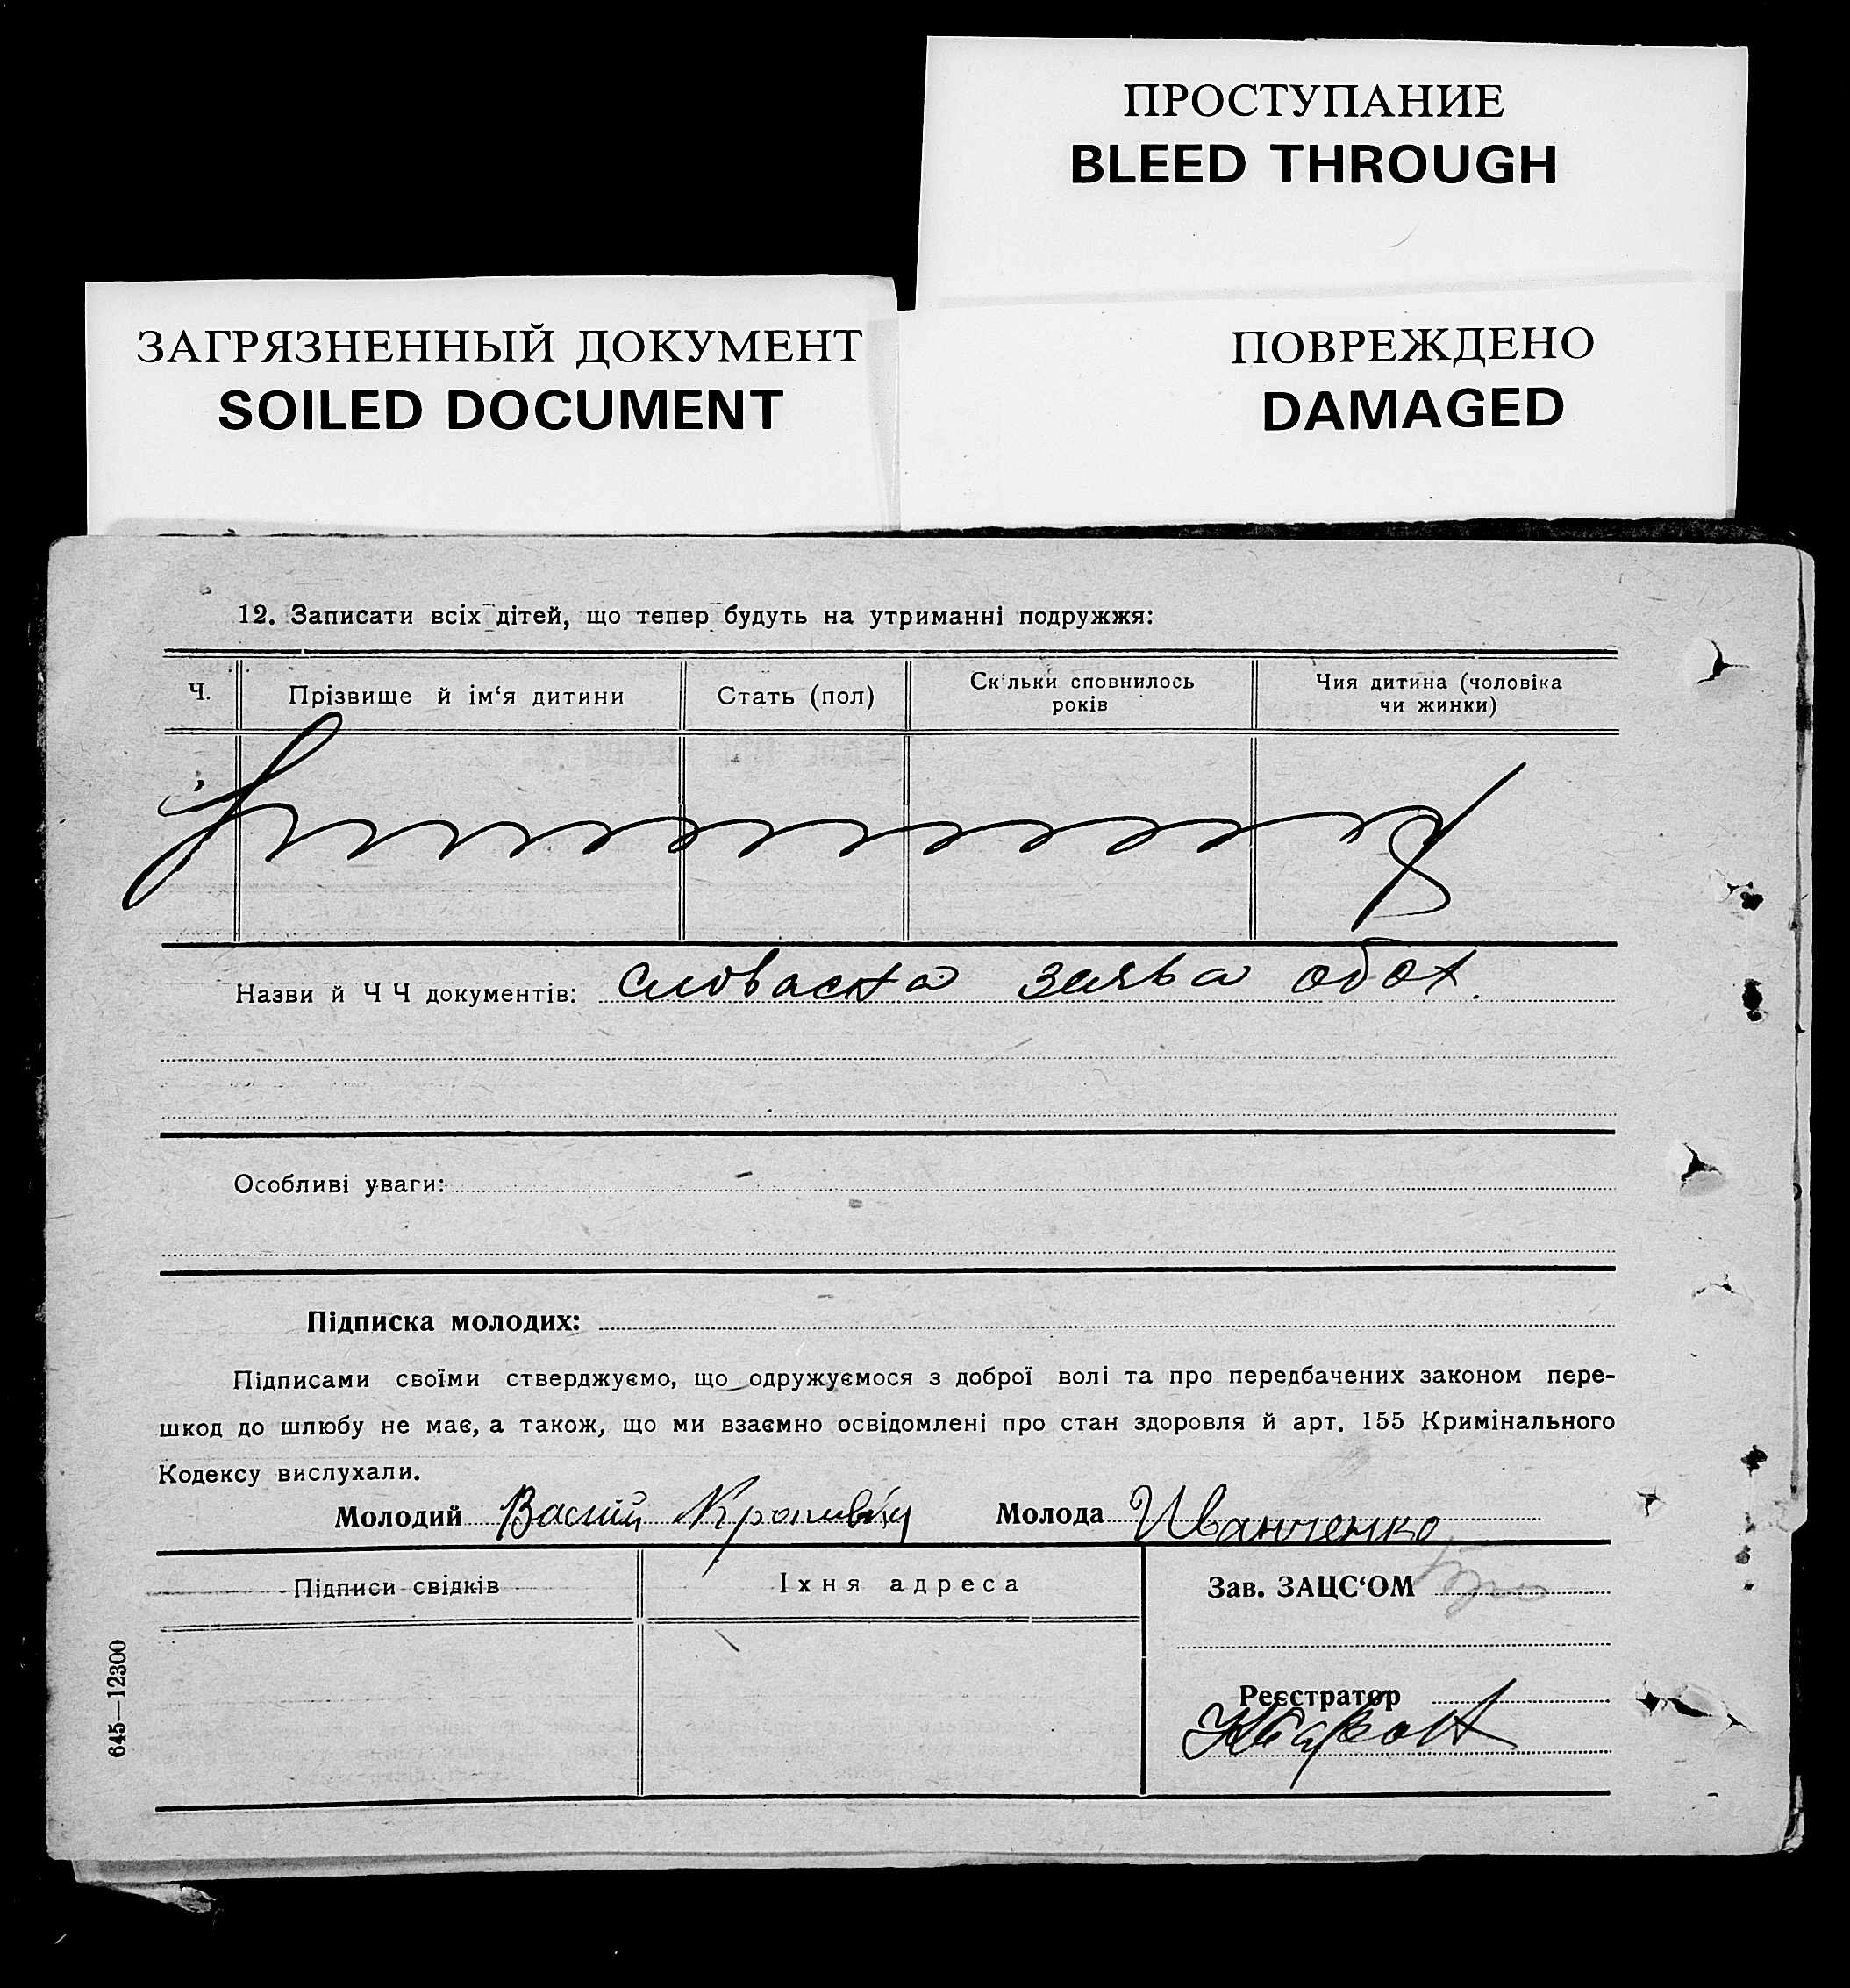 ПРОСТУПАНИЕ
BLEED THROUGH
ЗАГРЯЗНЕННЫЙ ДОКУМЕНТ
SOILED DOCUMENT
ПОВРЕЖДЕНО
DAMAGED
12. Записати всіх дітей, що тепер будуть на утриманні подружжя:
Ч.
Прізвище й ім‘я дитини
Стать (пол)
Скільки сповнилось
років
Чия дитина (чоловіка
чи жинки)
Назви й Ч Ч документів: заява обох.
Особливі уваги: –
Підписка молодих:
Підписами своїми стверджуємо, що одружуємося з доброї волі та про передбачених законом пере-
шкод до шлюбу не має, а також, що ми взаємно освідомлені про стан здоровля й арт. 155 Кримінального
Кодексу вислухали.
Молодий Молода Иванченко
Підписи свідків
Їхня адреса
Зав. ЗАЦС‘ОМ
Реєстратор
645—12300